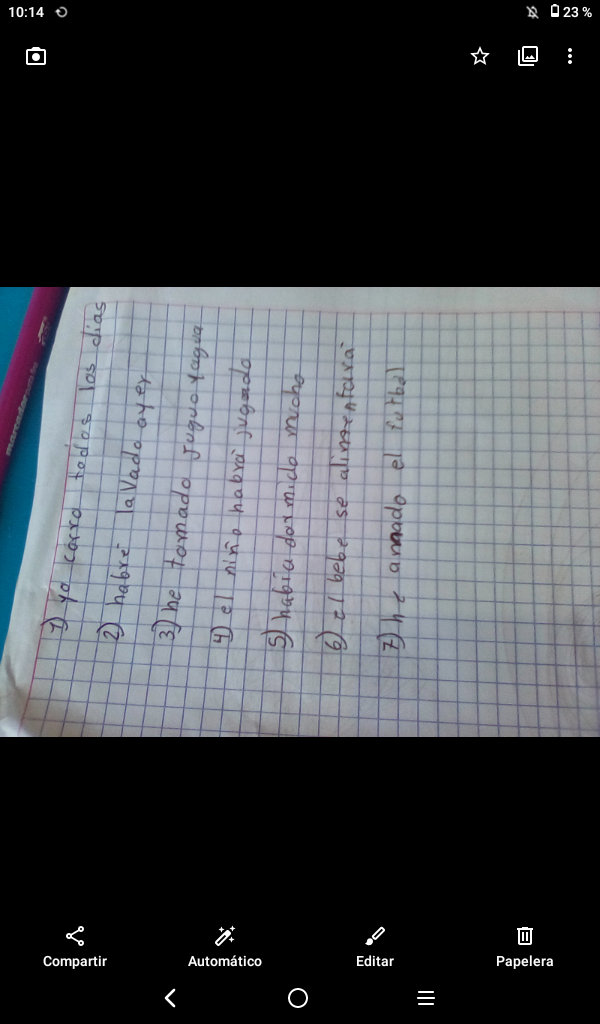 10:14
23 %
marcador
1) yo corro todos los dias
2) habré lavado ayer
3) he tomado juguo y agua
4) el niño habrá jugado
5) había dormido mucho
6) el bebe se alimentará
7) he amado el futbol
Compartir
Automático
Editar
Papelera